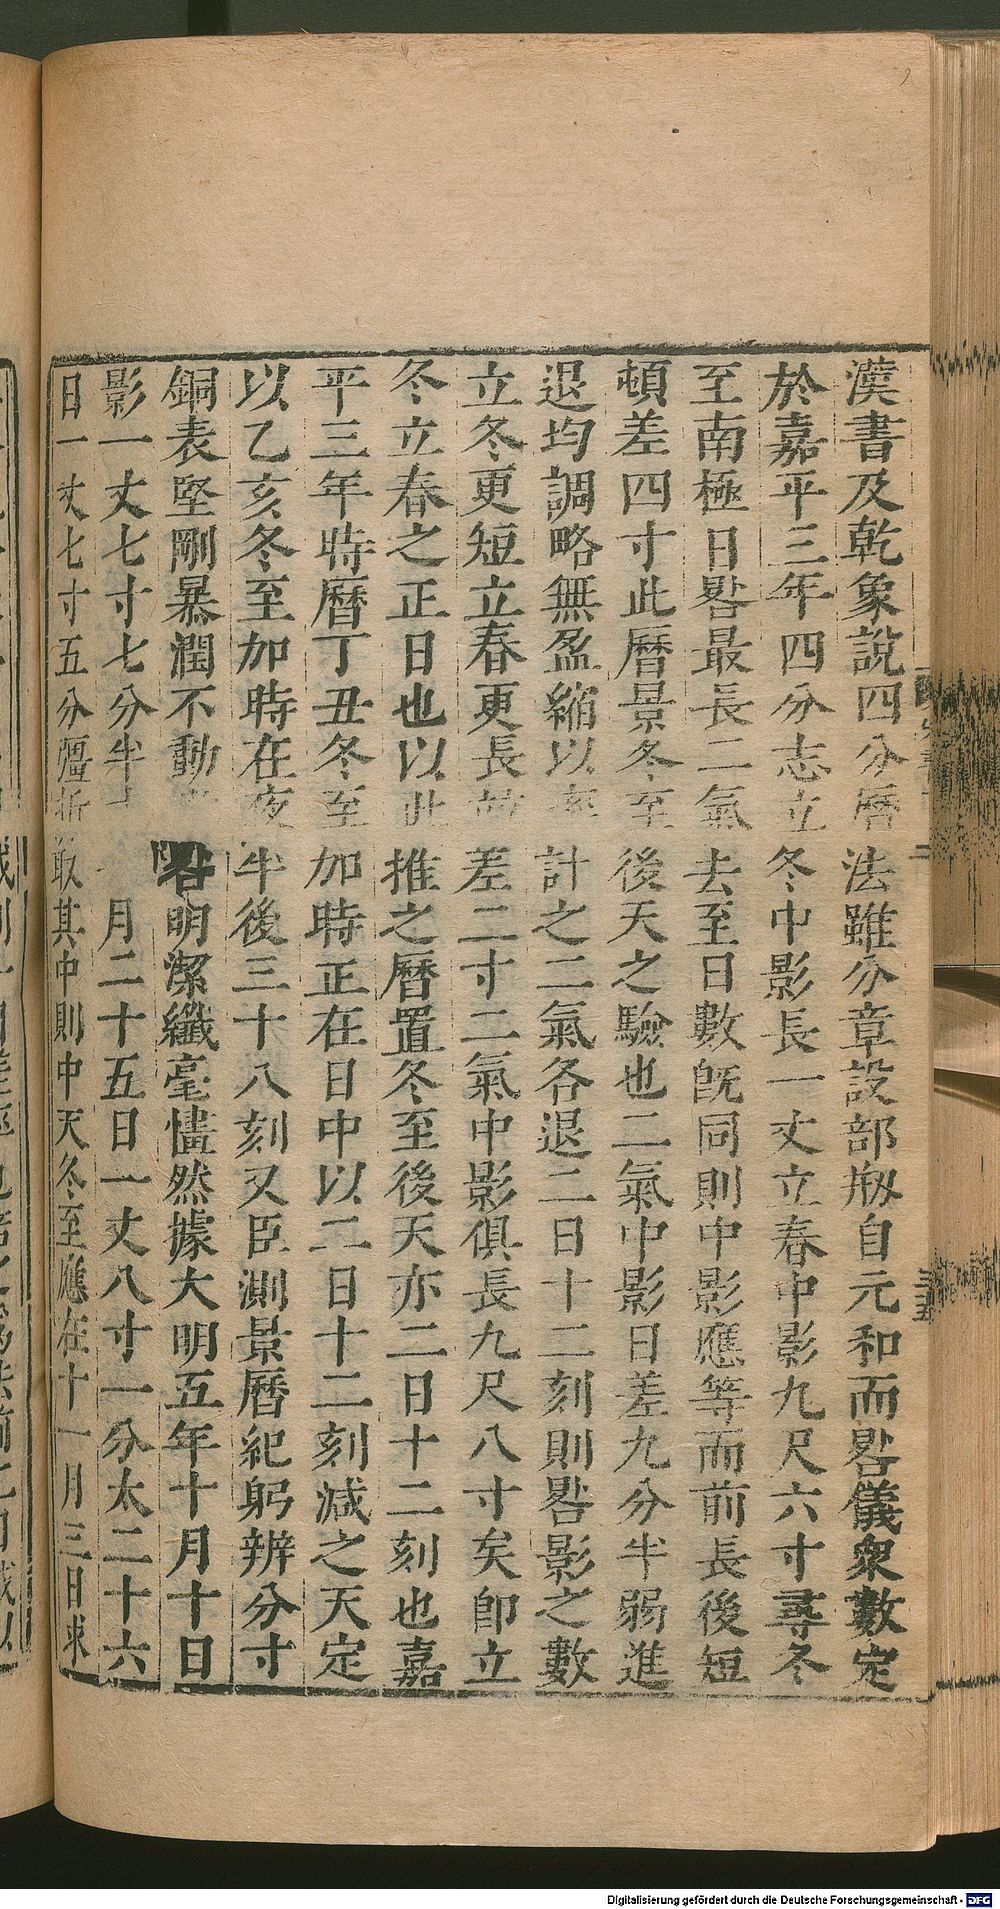 漢書及乾象說四分曆法雖分章設部㓱自元和而晷儀衆數定
於嘉平三年四分志立冬中影長一丈立春中影九尺六寸尋冬
至南極日晷最長二氣去至日數旣同則中影應等而前長後短
頓差四寸此曆景冬至後天之驗也二氣中影日差九分半弱進
退均調略無盈縮以率計之二氣各退二日十二刻則晷影之數
立冬更短立春更長並差二寸二氣中影俱長九尺八寸矣卽立
冬立春之正日也以此推之曆置冬至後天亦二日十二刻也嘉
平三年時曆丁丑冬至加時正在日中以二日十二刻減之天定
以乙亥冬至加時在夜半後三十八刻又臣測景曆紀躬辨分寸
銅表堅剛暴潤不動 晷明潔纖毫㦎然據大明五年十月十日
影一丈七寸七分半 月二十五日一丈八寸一分太二十六
日一丈七寸五分彊折取其中則中天冬至應在十一月三日求
Digitalisierung gefördert durch die Deutsche Forschungsgemeinschaft - DFG